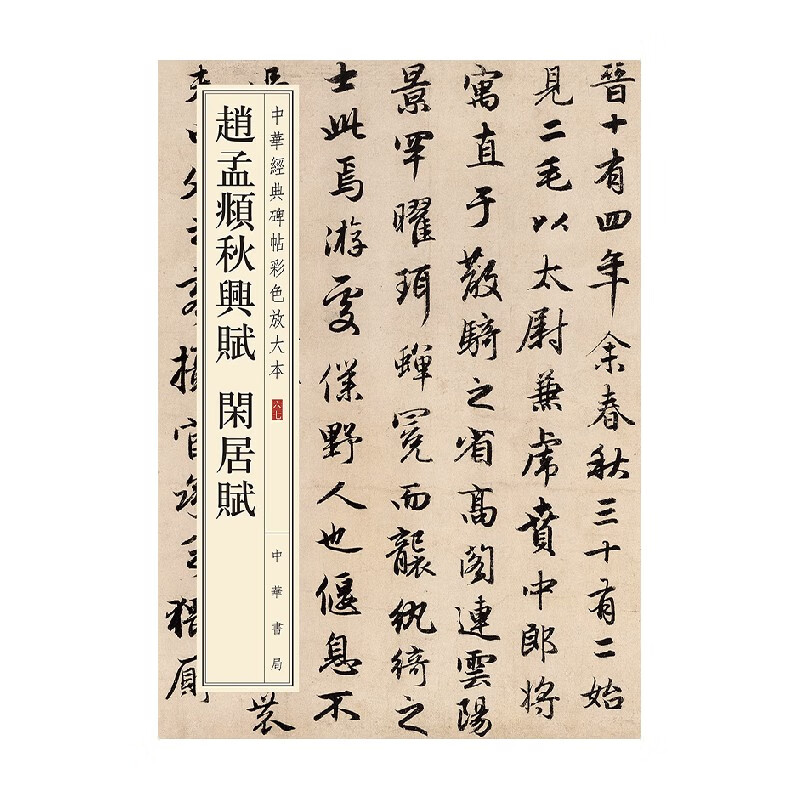 晉十有四年余春秋三十有二始
見二毛以太尉兼虎賁中郎將
寓直于散騎之省高閣連雲陽
景罕曜珥蟬冕而襲紈綺之
士此焉游處僕野人也偃息不
農
中華經典碑帖彩色放大本 六七 中華書局
趙孟頫秋興賦 閑居賦
攝官承乏猥廁